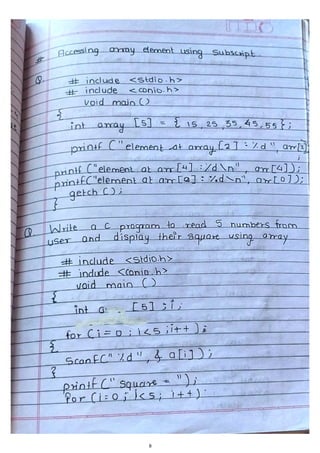 # Accessing array element using Subscript
Q. # include <stdio.h>
# include <conio.h>
void main ()
{
int array [5] = { 15, 25, 35, 45, 55 };
printf ("element at array [2] : %d", arr[2]
;
printf ("element at arr[4] : %d\n", arr[4]);
printf ("element at arr[0] : %d\n", arr[0]);
getch ();
}
Q Write a C program to read 5 numbers from
user and display their square using array
# include <stdio.h>
# include <conio.h>
void main ()
{
int a [5] ; i ;
for (i = 0 ; i<5 ; i++) ;
{
Scanf (" %d", & a[i]);
}
printf (" Square = ");
for (i=0 ; i<5 ; i++)